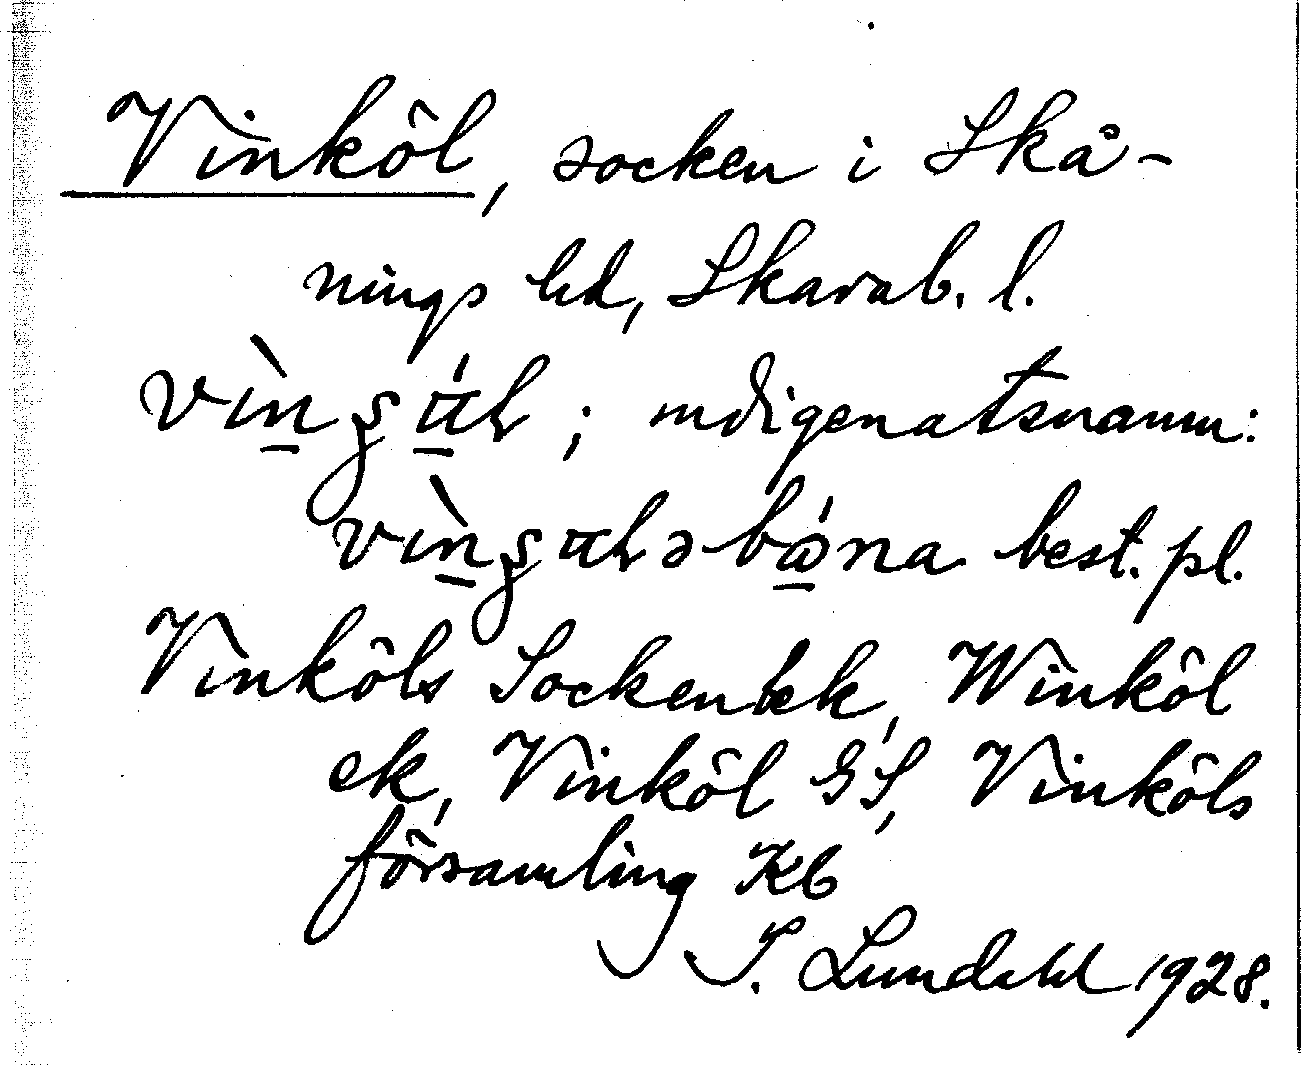 Vinköl, socken i Skå-
nings hd, Skarab. l.
; indigenatsnamn:
best. pl.
Vinköls Sockenbek, Winköl
ek, Vinköl GS, Vinköls
församling Kb
I. Lundahl 1928.